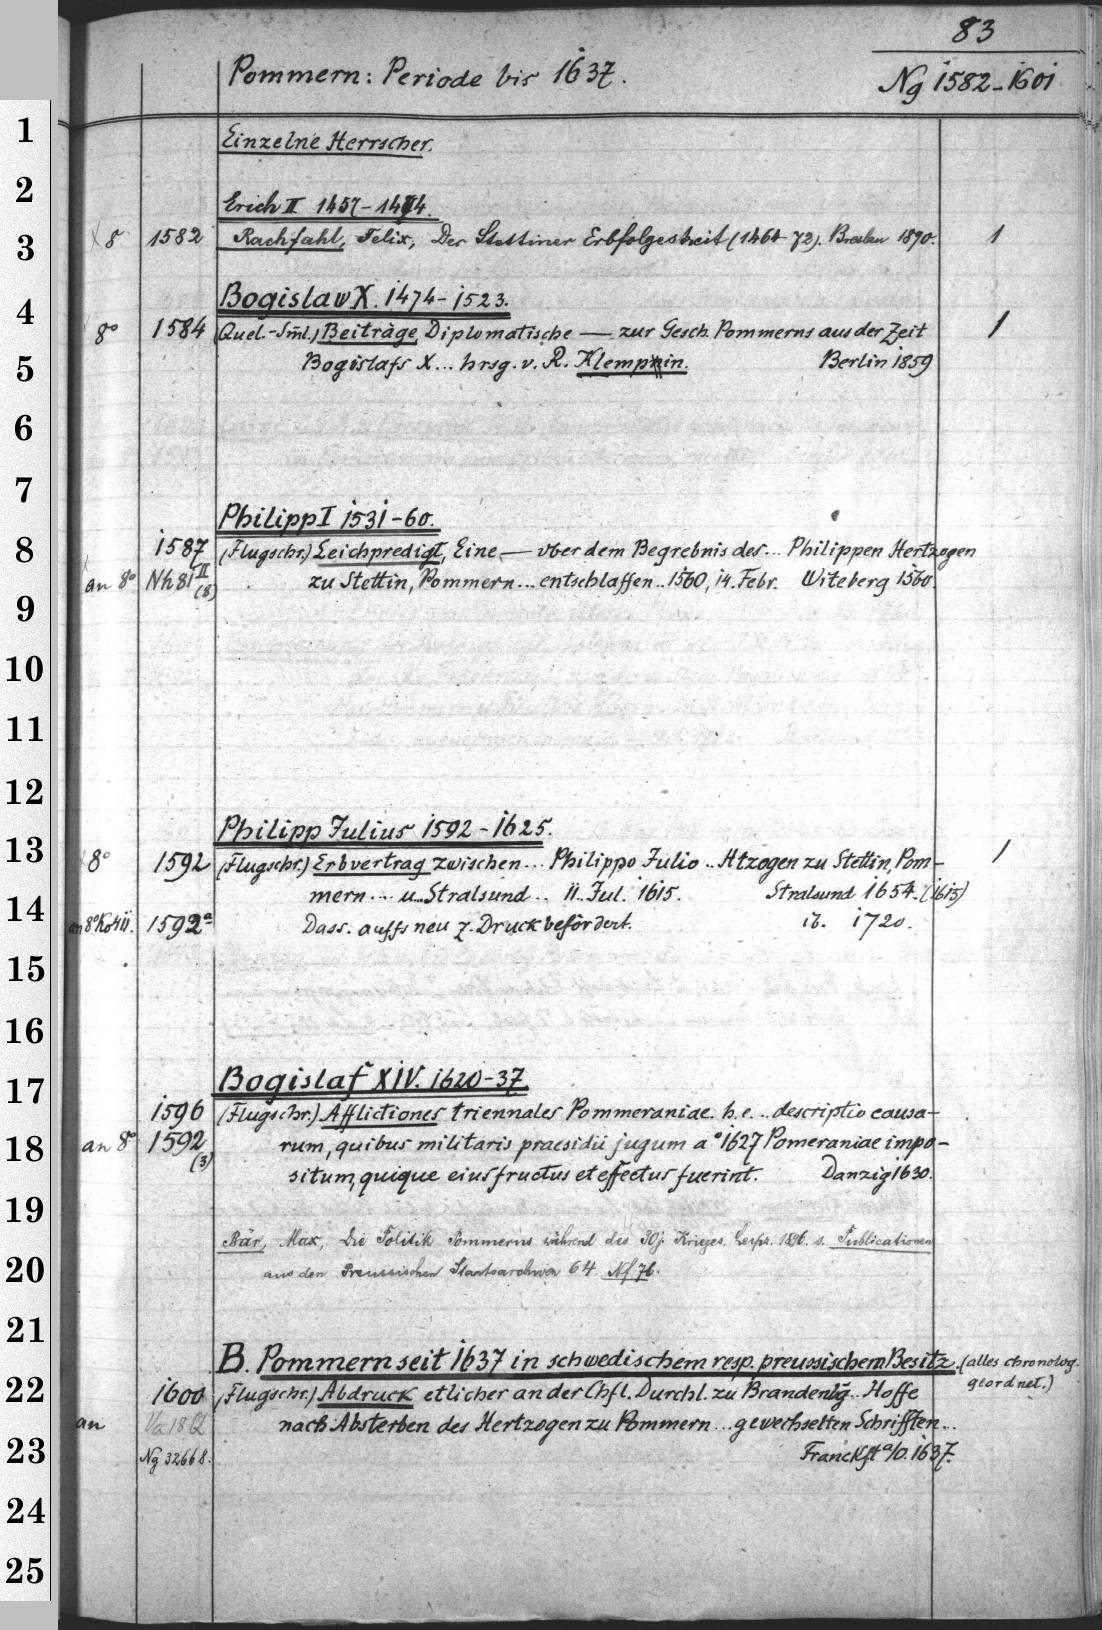 83
Pommern: Periode bis 1637.
Ng 1582-1601
1
Einzelne Herrscher.
2
Erich II 1457-1474.
3
8° 1582 Rachfahl, Felix, Der Stettiner Erbfolgestreit (1464-72). Breslau 1890. 1
Bogislaw X. 1474-1523.
4
8° 1584 (Quel.-Sml.) Beiträge, Diplomatische — zur Gesch. Pommerns aus der Zeit 1
5
Bogislafs X... hrsg. v. R. Klempin. Berlin 1859
6
7
Philipp I 1531-60.
8
1587 (Flugschr.) Leichpredigt, Eine — vber dem Begrebnis des... Philippen Hertzogen
an 8° Nh 81 II (8) zu Stettin, Pommern... entschlaffen.. 1560, 14. Febr. Witeberg 1560.
9
10
11
12
Philipp Julius 1592-1625.
13
8° 1592 (Flugschr.) Erbvertrag zwischen... Philippo Julio.. Htzogen zu Stettin, Pom- 1
mern... u. Stralsund... 11. Jul. 1615. Stralsund 1654. (1615)
14
an 8° Ko 4111. 1592a Dass. auffs neu z. Druck befördert. ib. 1720.
15
16
Bogislaf XIV. 1620-37.
17
1596 (Flugschr.) Afflictiones triennales Pommeraniae. h.e... descriptio causa-
18
an 8° 1592 (3) rum, quibus militaris praesidii jugum a° 1627 Pomeraniae impo-
situm, quique eius fructus et effectus fuerint. Danzig 1630.
19
Bär, Max, Die Politik Pommerns während des 30j. Krieges. Leipz. 1896. s. Publicationen
20
aus den Preussischen Staatsarchiven 64. Nf 76.
21
B. Pommern seit 1637 in schwedischem resp. preussischem Besitz. (alles chronolog.
geordnet.)
22
1600 (Flugschr.) Abdruck etlicher an der Chfl. Durchl. zu Brandenbg... Hoffe
an nach Absterben des Hertzogen zu Pommern... gewechselten Schrifften...
23
Ng 32668. Franckft a/O. 1637.
24
25